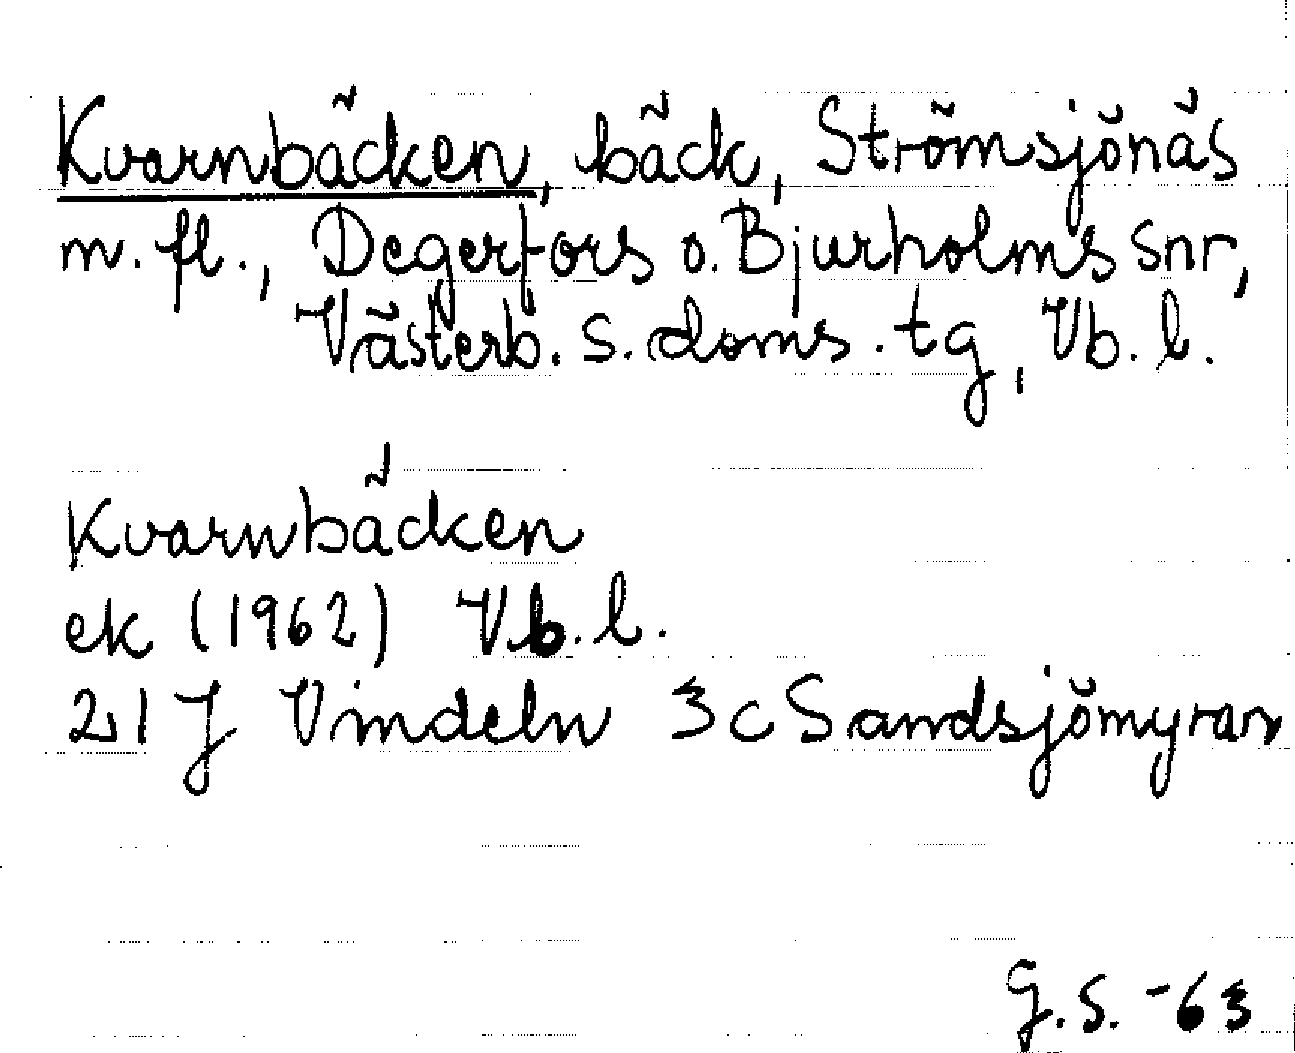 Kvarnbäcken, bäck, Strömsjönäs
m. fl., Degerfors o. Bjurholms snr,
Västerb. s. doms. tg, Vb. l.
Kvarnbäcken
ek (1962) Vb. l.
21 J Vindeln 3 c Sandsjömyran
G. S. -63